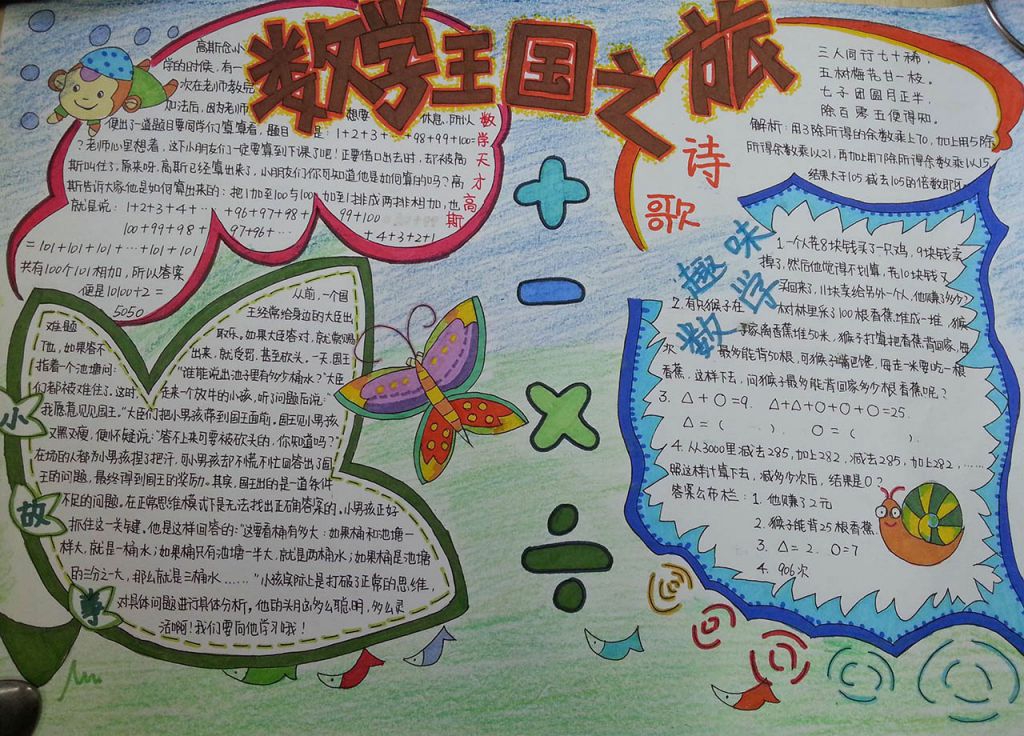 数学王国之旅
高斯念小
学的时候，有一
次在老师教完
加法后，因为老师 想要 休息，所以
便出了一道题目要同学们算算看，题目 是：1+2+3+ +98+99+100=
？老师心里想着，这下小朋友们一定要算到下课了吧！正要借口出去时，却被高
斯叫住了，原来呀，高斯已经算出来了，小朋友们你可知道他是如何算的吗？高
斯告诉大家他是如何算出来的：把1加到100与100加到1排成两排相加，也
就是说：1+2+3+4+ +96+97+98+ 99+100
100+99+98+ 97+96+… +4+3+2+1
=101+101+101+…+101+101
共有100个101相加，所以答案
便是10100÷2=
5050
数学天才高斯
诗歌
三人同行七十稀，
五树梅花廿一枝。
七子团圆月正半，
除百零五便得知。
解析：用3除所得的余数乘上70，加上用5除
所得余数乘以21，再加上用7除所得余数乘以15，
结果大于105减去105的倍数即可
趣味数学
1.一个人花8块钱买了一只鸡，9块钱卖
掉了，然后他觉得不划算，花10块钱又
买回来了，11块卖给另外一个人，他赚了多少？
2.有只猴子在 树林里采了100根香蕉堆成一堆，猴
子家离香蕉堆50米，猴子打算把香蕉背回家，每
次 最多能背50根，可猴子嘴巴馋，每走一米要吃一根
香蕉，这样下去，问猴子最多能背回家多少根香蕉呢？
3. △+○=9. △+△+○+○+○=25.
△=( ). ○=( ).
4.从3000里减去285，加上282，减去285，加上282，……
照这样计算下去，减多少次后，结果是0？
答案公布栏：1.他赚了2元
2.猴子能背25根香蕉.
3. △=2. ○=7
4. 906次
+
−
×
÷
小故事
从前，一个国
王经常给身边的大臣出
难题 取乐，如果大臣答对，就常赐
下位，如果答不 出来，就受罚，甚至砍头，一天，国王
指着个池塘问：“谁能说出池子里有多少桶水？”大臣
们都被难住了。这时， 走来一个放牛的小孩，听了问题后说：“
我愿意见见国王。”大臣们把小男孩带到国王面前。国王见小男孩
又黑又瘦，便怀疑说：“答不上来可要被砍头的，你知道吗？”
在场的人都为小男孩捏了把汗，可小男孩却不慌不忙回答出了国
王的问题，最终得到国王的奖励。其实，国王出的是一道条件
不足的问题。在正常思维模式下是无法找出正确答案的，小男孩正好
抓住这一关键，他是这样回答的：“这要看桶有多大：如果桶和池塘一
样大，就是一桶水；如果桶只有池塘一半大，就是两桶水；如果桶是池塘
的三分之一大，那么就是三桶水……”小孩实际上是打破了正常的思维，
对具体问题进行具体分析，他的头脑多么聪明，多么灵
活啊！我们要向他学习哦！